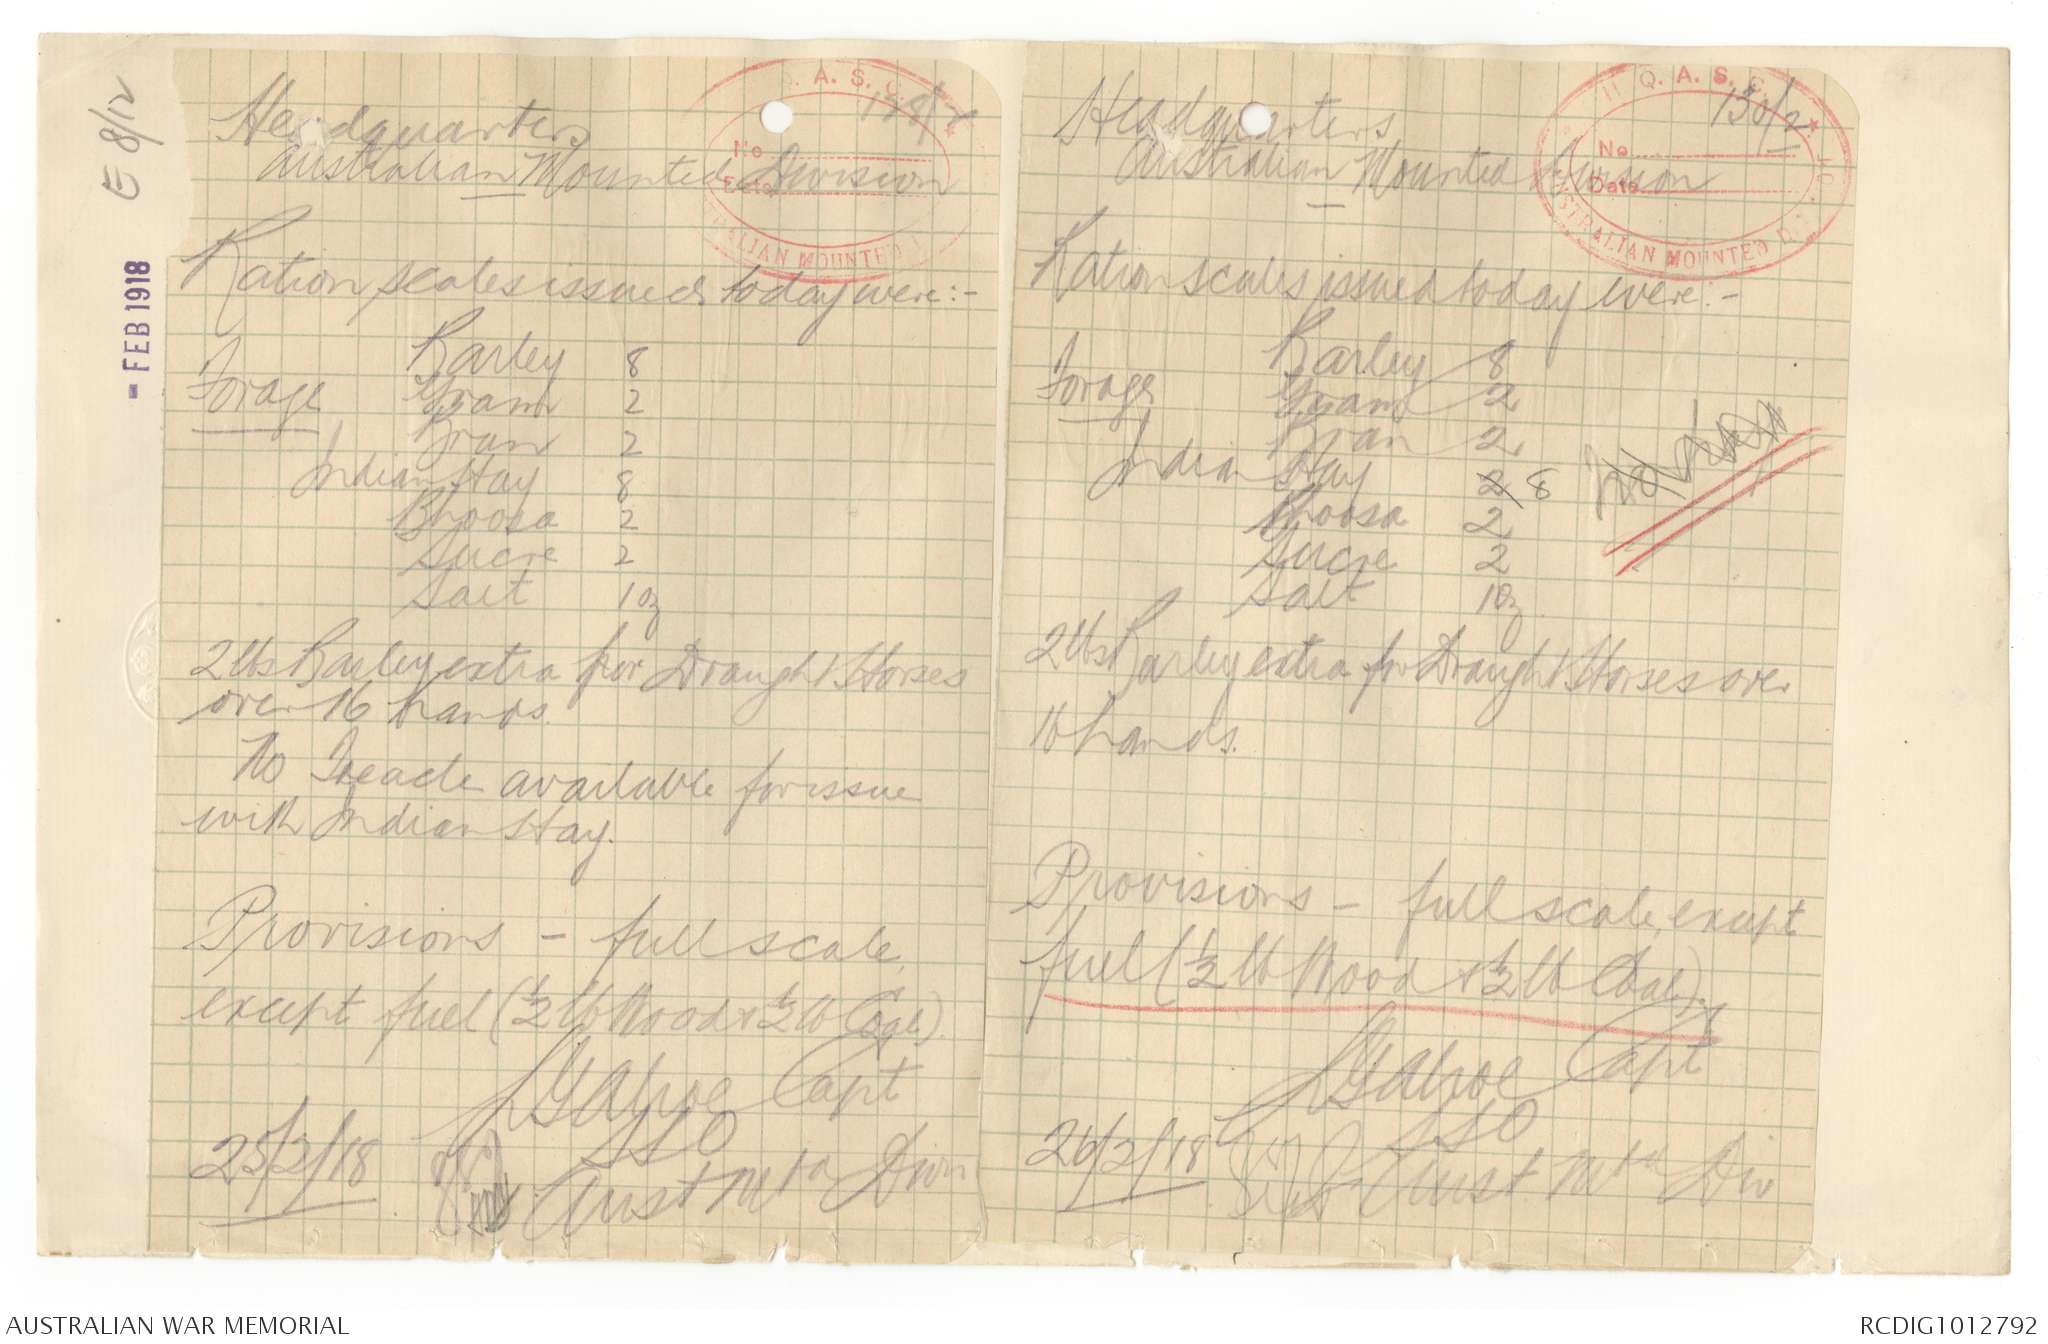 E 8/12
- FEB 1918
Headquarters
Australian Mounted Division
A. S. C.
No
Date
AUSTRALIAN MOUNTED
Ration scales issued today were:-
Forage
Barley 8
Gram 2
Bran 2
Indian Hay 8
Bhoosa 2
Sucre 2
Salt 1 oz
2 lbs Barley extra for Draught Horses
over 16 hands.
No Treacle available for issue
with Indian Hay.
Provisions - full scale,
except fuel (½ lb Wood & ½ lb Coal).
Capt
SSO
25/2/18
Aust Mtd Divn
Headquarters
Australian Mounted Division
H. Q. A. S. C.
130/2
No
Date
AUSTRALIAN MOUNTED D
Ration scales issued today were:-
Forage
Barley 8
Gram 2
Bran 2
Indian Hay 2 8
Bhoosa 2
Sucre 2
Salt 1 oz
2 lbs Barley extra for Draught Horses over
16 hands.
Provisions - full scale, except
fuel (½ lb Wood & ½ lb Coal).
Capt
SSO
26/2/18
Aust. Mtd Div
AUSTRALIAN WAR MEMORIAL
RCDIG1012792